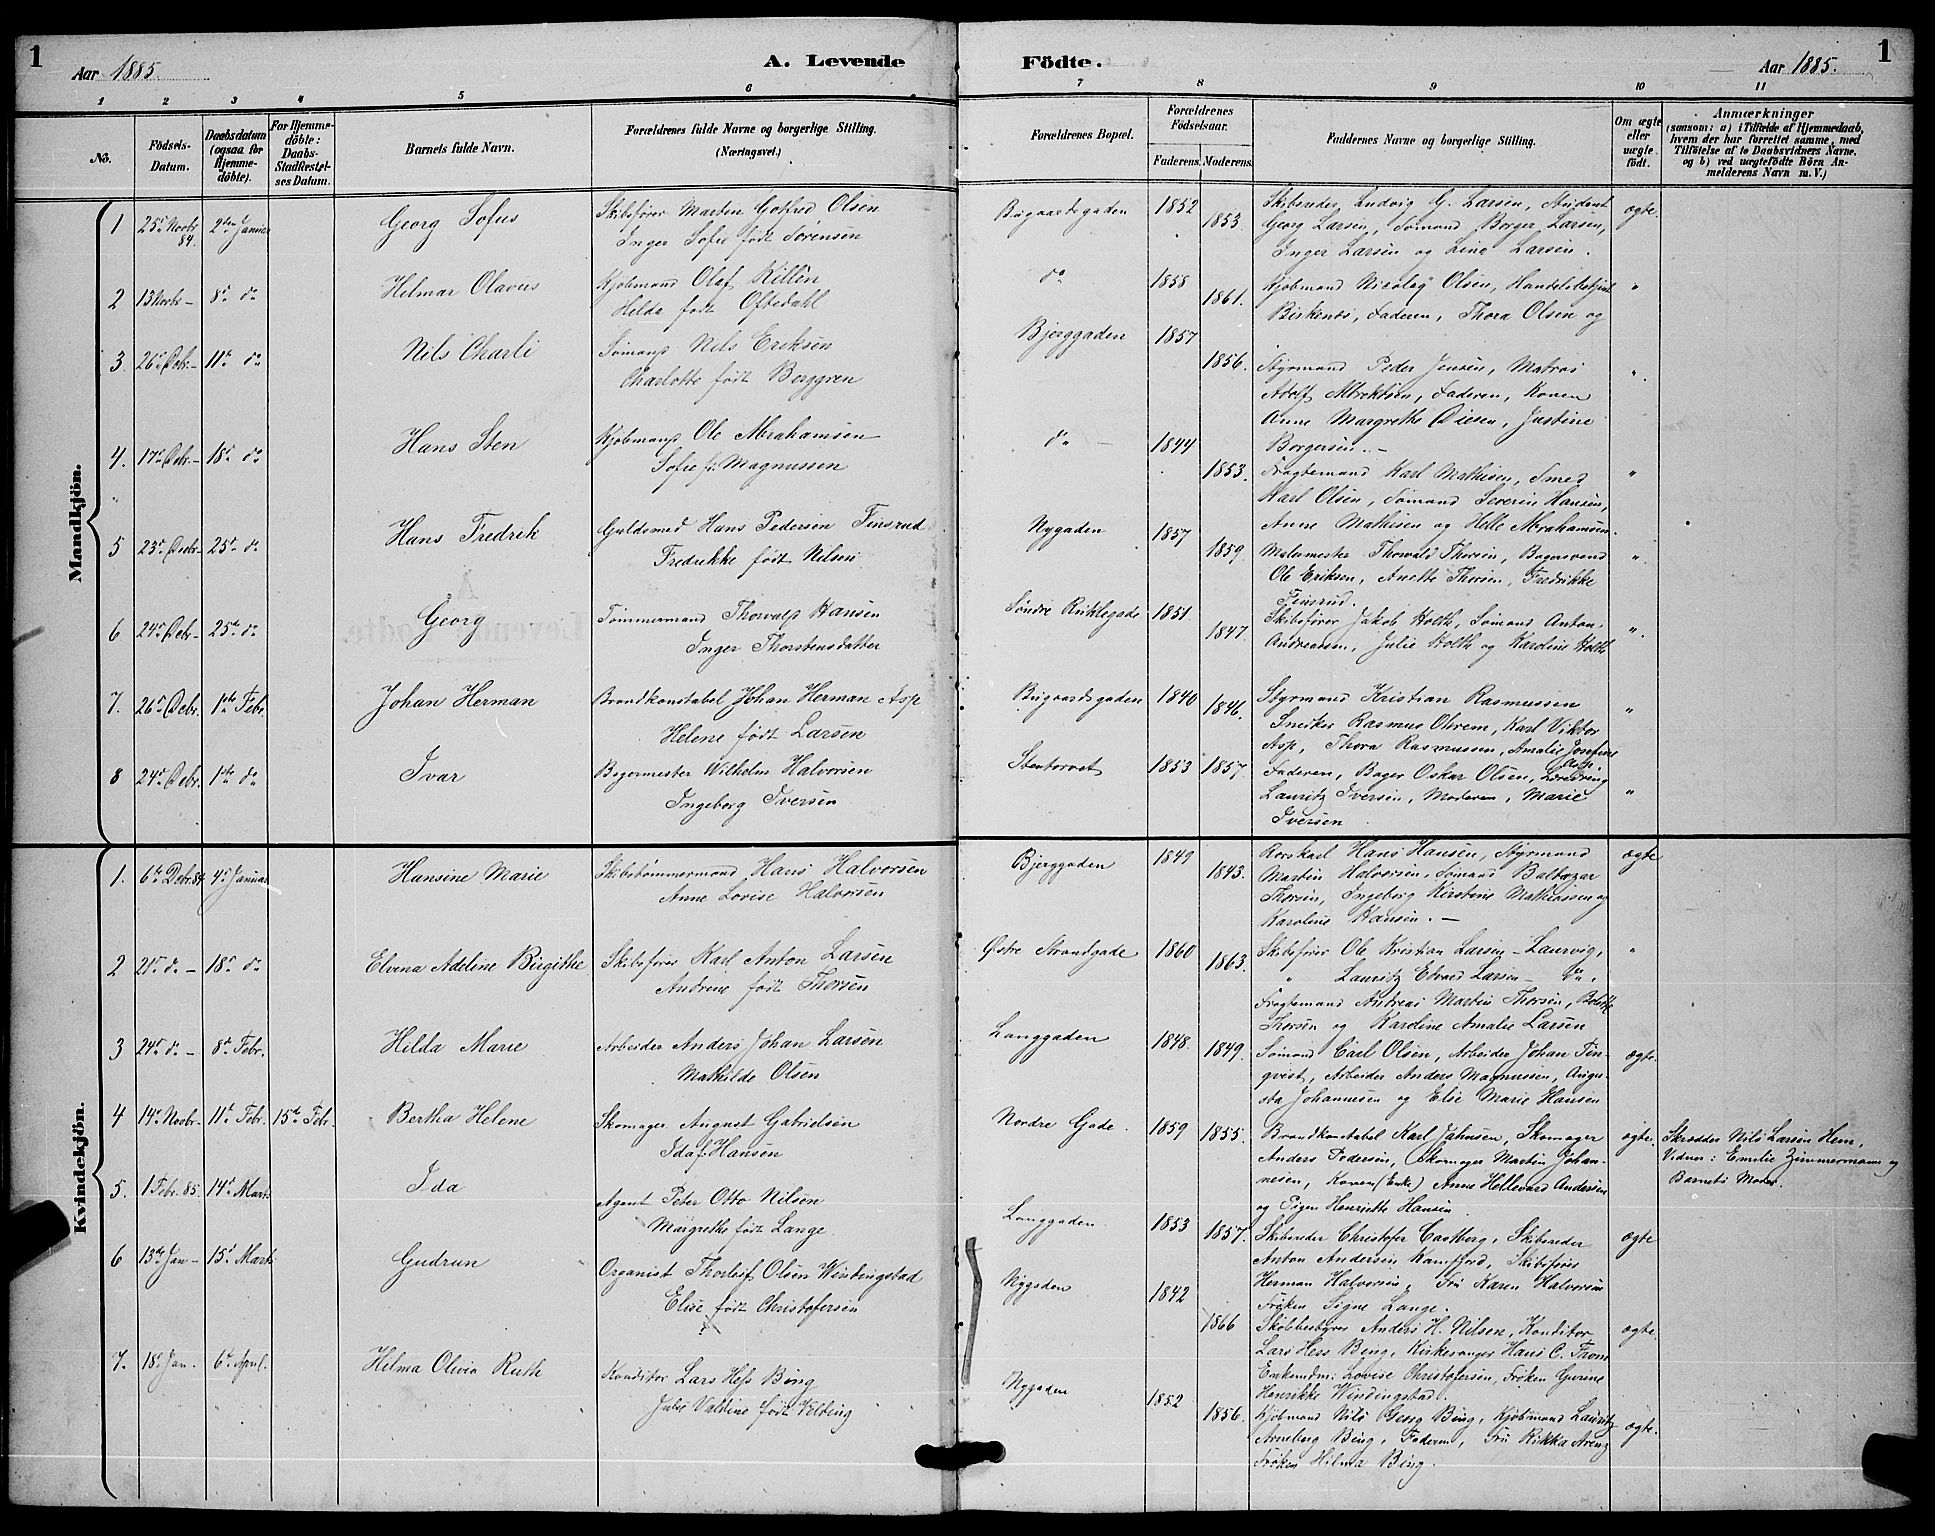 1
Aar 1885.
A. Levende
Födte.
Aar 1885.
1
1 2 3 4 5 6 7 8 9 10 11
No.
Födsels-
Datum.
Daabsdatum
(ogsaa for
Hjemme-
döbte).
For Hjemme-
döbte:
Daabs-
Stadfæstel-
ses Datum.
Barnets fulde Navn.
Forældrenes fulde Navne og borgerlige Stilling.
(Næringsvei.)
Forældrenes Bopæl.
Forældrenes
Födselsaar.
Faderens. Moderens.
Faddernes Navne og borgerlige Stilling.
Om ægte
eller
uægte
födt.
Anmærkninger
(saasom: a) i Tilfælde af Hjemmedaab,
hvem der har forrettet samme, med
Tilföielse af to Daabsvidners Navne,
og b) ved uægtefödte Börn An-
melderens Navn m. V.)
Mandkjön.
1 25de Novbr 84. 2den Januar Georg Sofus
Skibsfører Martin Gotfred Olsen
Inger Sofie født Sørensen
Bugaardsgaden 1852 1853.
Skibsreder Ludvig G. Larsen, Student
Georg Larsen, Sømand Borger Larsen,
Inger Larsen og Lina Larsen.
ægte.
2 13 Novbr – 8de do Helmar Olavus
Kjøbmand Olaf Killén
Hilda født Oftedahl
do 1858 1861.
Kjøbmand Nicolay Olsen, Handelsbetjent
Birkenes, Faderen, Thora Olsen og
"
3. 26de Debr. – 11te do Nils Charli
Sømand Nils Eriksen
Charlotte født Berggren
Bjerggaden 1857 1856.
Styrmand Peder Jensen, Matros
Adolf Albrektsen, Faderen, Konen
Anne Margrethe Olesen, Justine
Borgersen. –
"
4. 17de Debr. – 18de do Hans Sten
Kjøbmand Ole Abrahamsen
Sofie f: Magnussen
do – 1844 1853.
Fragtemand Karl Mathisen, Smed
Karl Olsen, Sømand Severin Hansen,
Anne Mathisen og Helle Abrahamsen.
"
5 23de Debr – 25de do Hans Fredrik
Guldsmed Hans Pedersen Finsrud
Fredrikke født Nilsen
Nygaden 1857 1859.
Malermester Thorvald Thorsen, Bagersvend
Ole Eriksen, Anette Thorsen, Fredrikke
Finsrud.
"
6 24de Debr – 25de do Georg
Tømmermand Thorvald Hansen
Inger Thorstensdatter
Søndre 1851. 1847.
Skibsfører Jakob Holth, Sømand Anton
Andreassen, Julie Holth og Karoline Holth
"
7. 26de Debr. 1ste Febr. Johan Herman
Brandkonstabel Johan Herman Asp
Helene født Larsen
Bugaardsgaden 1840 1846.
Styrmand Kristian Rasmussen
Snedker Rasmus Olsen, Karl Viktor
Asp, Thora Rasmussen, Amalie Josefine
Asp.
"
8 24de Debr. 1ste do Ivar
Bagermester Wilhelm Halvorsen
Ingeborg Iversen
Stentorvet 1853 1857.
Faderen, Bager Oskar Olsen,
Lauritz Iversen, Moderen, Marie
Iversen
"
Kvindekjön.
1. 6te Debr. 84 4de Januar Hansine Marie
Skibstømmermand Hans Halvorsen
Anne Lovise Halvorsen
Bjerggaden 1849 1843.
Rorskarl Hans Hansen, Styrmand
Martin Halvorsen, Sømand Baltazar
Thorsen, Ingeborg Kirstine Mathiassen og
Karoline Hansen. –
ægte
2 21de do – 18de do Elvina Adeline Birgithe
Skibsfører Karl Anton Larsen
Andrine født Thorsen
Østre Strandgade 1860 1863.
Skibsfører Ole Kristian Larsen – Laurvig,
" Lauritz Edvard Larsen – do,
Fragtemand Andreas Martin Thorsen, Bolette
Thorsen og Karoline Amalie Larsen
"
3 24de do – 8de Febr. Hilda Marie
Arbeider Anders Johan Larsen
Mathilde Olsen
Langgaden 1848. 1849.
Sømand Carl Olsen, Arbeider Johan Fin-
qvist, Arbeider Anders Magnussen, Augu-
sta Johannesen og Elise Marie Hansen
ægte.
4 14de Novbr – 11te Febr. 15de Febr. Bertha Helene
Skomager August Gabrielsen
Ida f: Hansen
Nordre Gade. 1859 1855.
Brandkonstabel Karl Johnsen, Skomager
Anders Pedersen, Skomager Martin Johan-
nesen, Konen (Enke) Anne Hellevard Andersen
og Pigen Henriette Hansen
ægte.
Skrædder Nils Larsen Hem,
Vidner: Emilie Zimmermann og
Barnets Moder.
5. 1 Febr. 85. 14de Marts Ida
Agent Peter Otto Nilsen
Margrethe født Lange
Langgaden. 1853 1857.
Skibsreder Christofer Castberg, Skibsreder
Anton Andersen Kamfjord, Skibsfører
Herman Halvorsen, Fru Karen Halvorsen
Frøken Signe Lange.
ægte
6 13de Jan – 15de Marts Gudrun
Organist Thorleif Olsen Windingstad
Elise født Christofersen
Nygaden 1842 1866
Anders H. Nilsen, Konditor
Lars Hess Bing, Kirkesanger Hans C. Thom
Enkemdm: Lovise Christofersen, Frøken Gurine
Henrikke Windingstad.
ægte.
7. 18de Jan. 6te April. Helma Olivia Ruth
Konditor Lars Hess Bing
Julie Valdine født Velding
Nygaden 1852 1856.
Kjøbmand Nils Georg Bing, Kjøbmand Lauritz
Arneberg Bing, Faderen, Fru Rikka Arenz
Frøken Hilma Bing.
ægte.